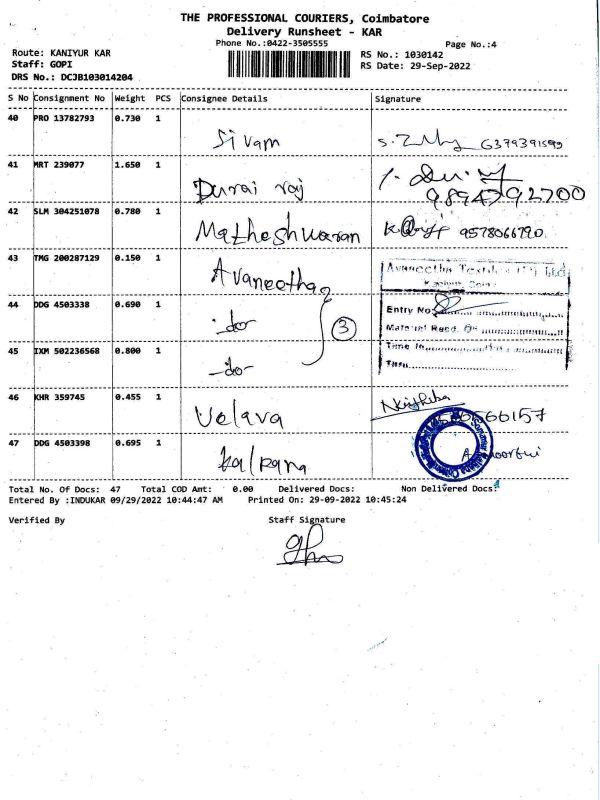 THE PROFESSIONAL COURIERS, Coimbatore
Delivery Runsheet - KAR
Phone No.:0422-3505555
Page No.:4
Route: KANIYUR KAR
RS No.: 1030142
Staff: GOPI
RS Date: 29-Sep-2022
DRS No.: DCJB103014204
S No Consignment No Weight PCS Consignee Details Signature
40 PRO 13782793 0.730 1
Sivam 6379391599
41 MRT 239077 1.650 1
Durai raj
9894792700
42 SLM 304251078 0.780 1
Matheshwaran 9578066790
43 TMG 200287129 0.150 1
Avaneetha Avaneetha Textiles (P) Ltd
44 DDG 4503338 0.690 1
Entry No
-do- 3
Material Recd. On
45 IXM 502236568 0.800 1
Time In
-do-
46 KHR 359745 0.455 1
Velava
47 DDG 4503398 0.695 1
Kalpana
Total No. Of Docs: 47 Total COD Amt: 0.00 Delivered Docs: Non Delivered Docs:
Entered By :INDUKAR 09/29/2022 10:44:47 AM Printed On: 29-09-2022 10:45:24
Verified By Staff Signature